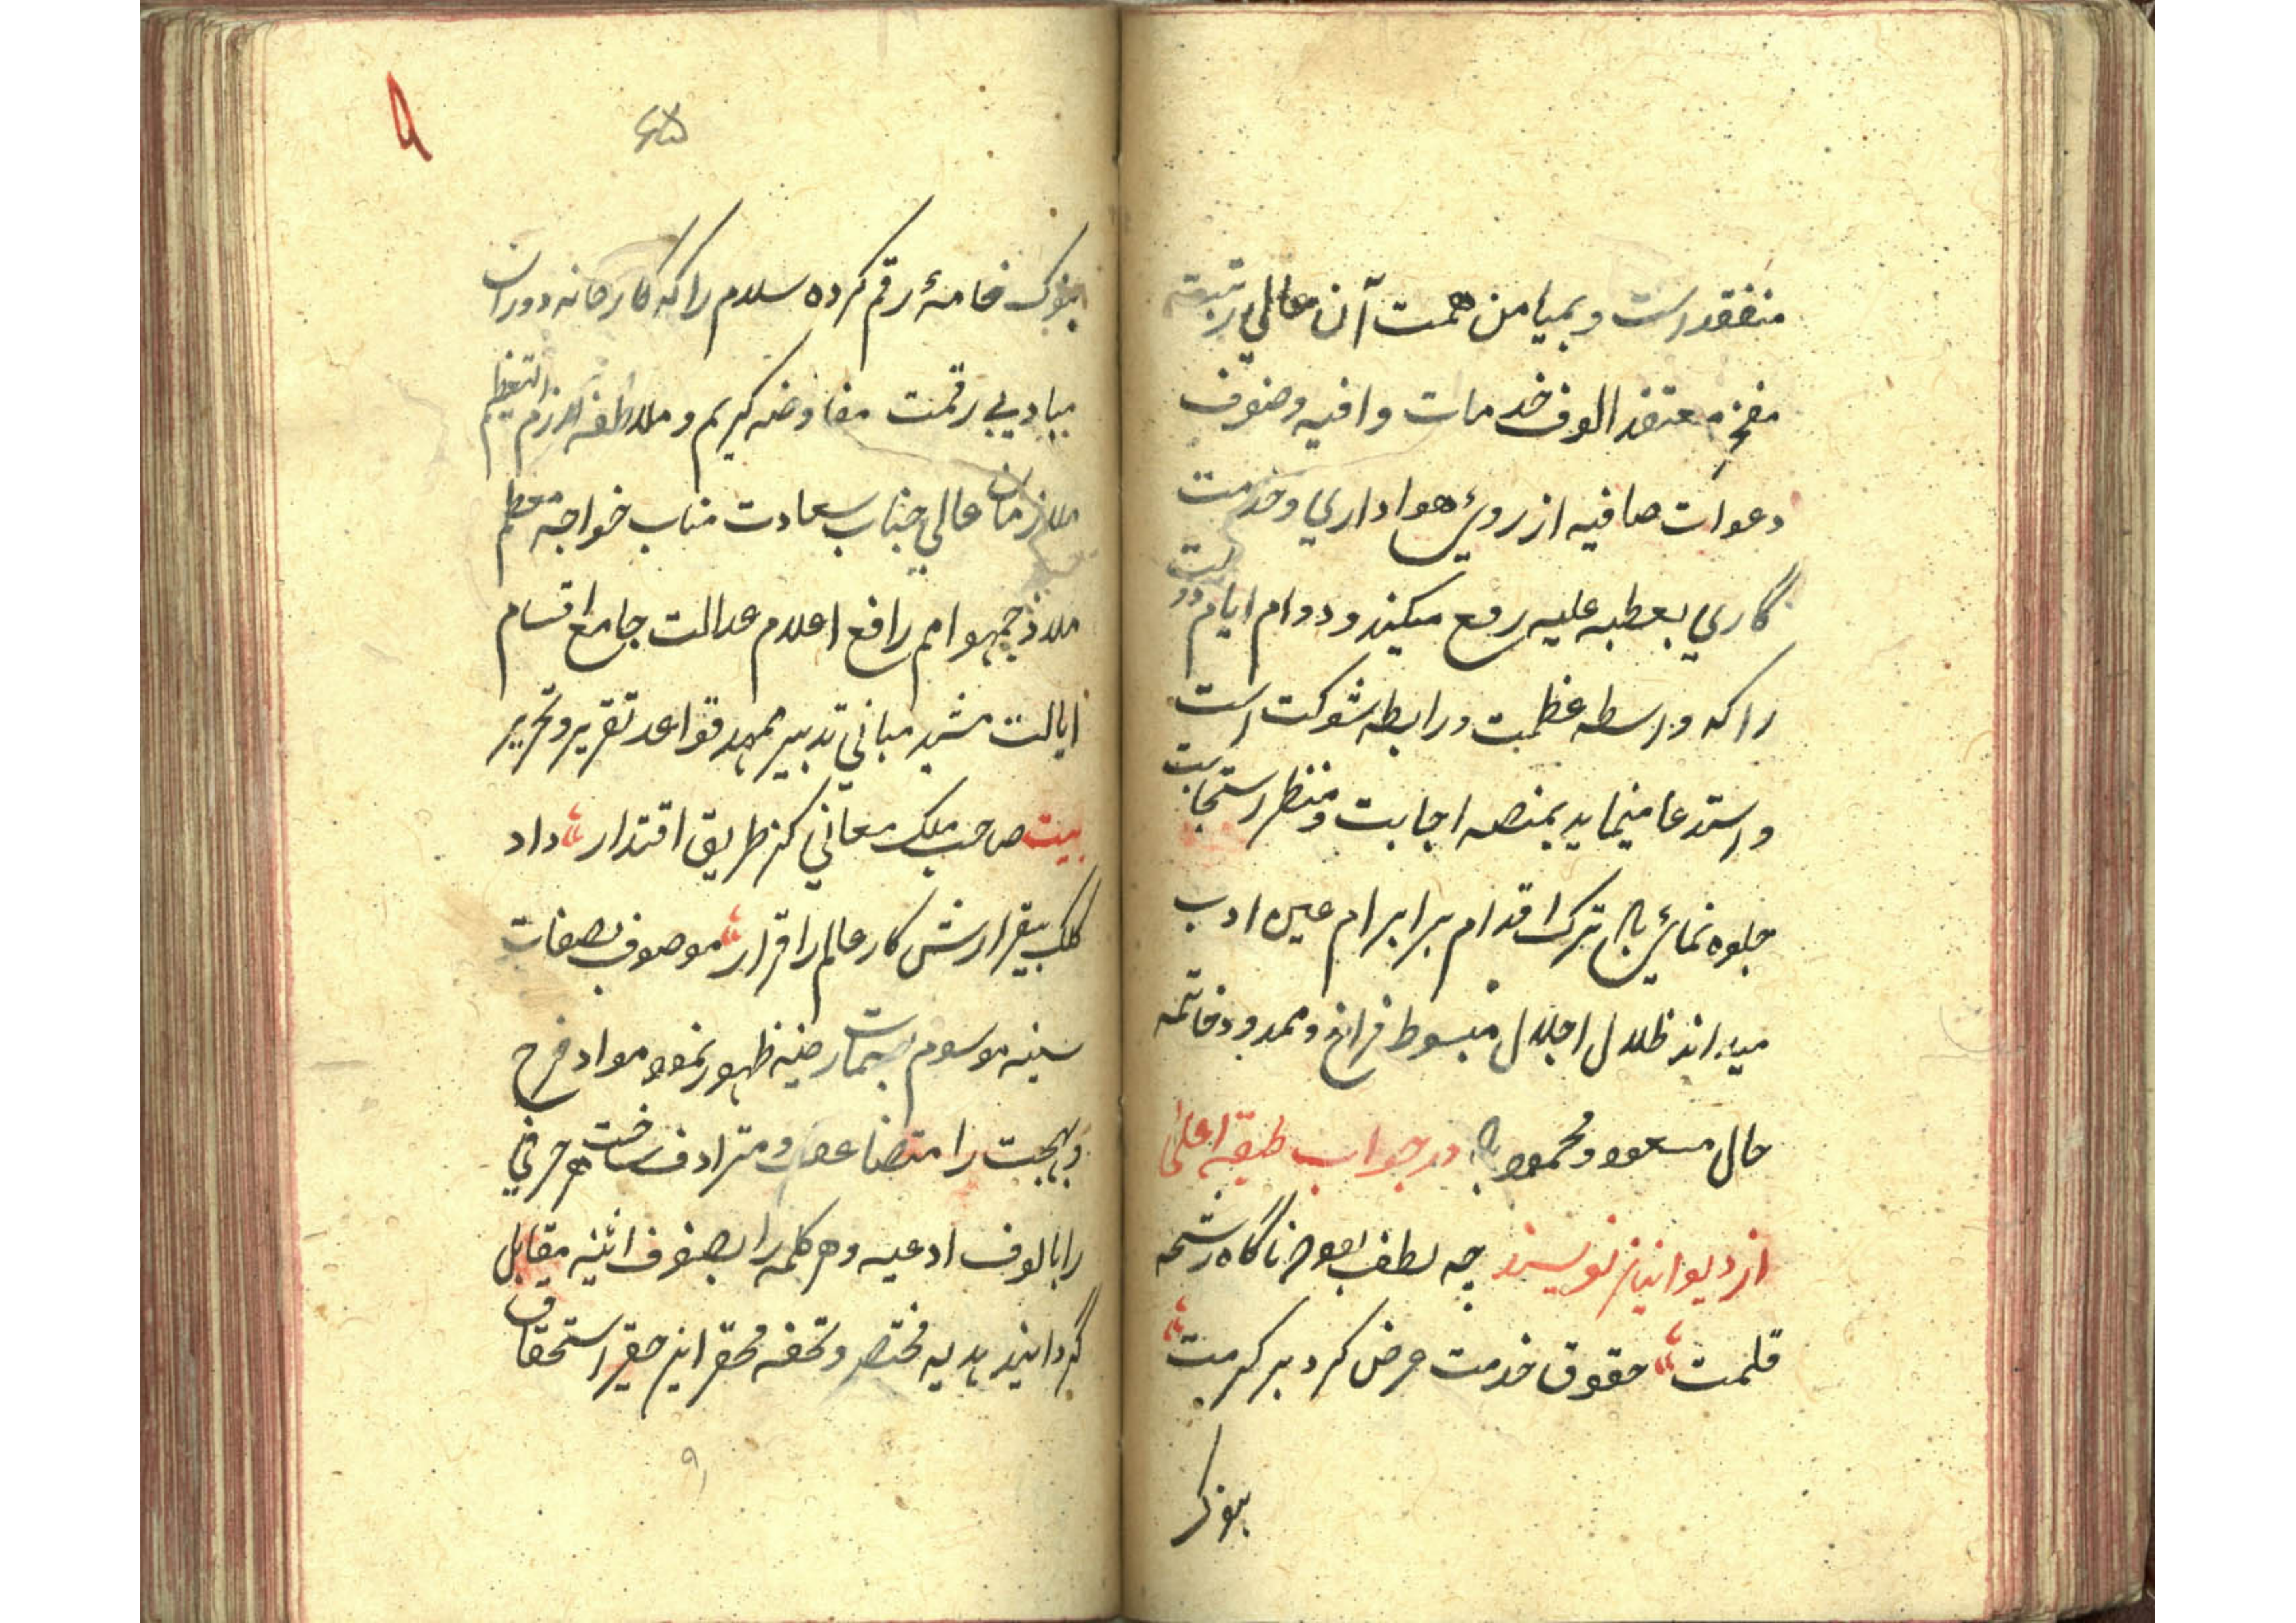 منفقد است و بمیامن همت آن عالی رتبت
مفخر معتقد الوف خدمات وافیه وصنوف
دعوات صافیه از روی هواداری و خدمت
کاری بعطبه علیه رفع میکند و دوام ایام دولت
را که واسطه عظمت و رابطه شوکت است
و استدعا مینماید بمنصه اجابت و منظر استجابت
جلوه نمای باد ترک اقدام بر ابرام عین ادب
میداند ظلال اجلال مبسوط فراخ و ممدود و خاتمه
حال مسعود و محمود باد در جواب طبقه اعلی
از دیوانیان نویسند چه لطف بود که ناگاه رشحه
قلمت حقوق خدمت عرض کرد بر کرمت
بنوک
٩
بنوک خامهٔ رقم کرده سلام را که کارخانه دوران
مبادی رقمت مفاوضه کریم و ملاطفه لازم التعظیم
ملازمان عالی جناب سعادت مناب خواجه معظم
ملاذ جمهور امم رافع اعلام عدالت جامع اقسام
ایالت مشید مبانی تدبیر ممهد قواعد تقریر و تحریر
بیت صاحب ملک معانی کز طریق اقتدار داد
کلک بیقرارش کار عالم را قرار موصوف بصفات
سنیه موسوم بسمات رضیه ظهور نمود و مواد فرح
و بهجت را متضاعف و مترادف ساخت هر حرفی
را بالوف ادعیه و هر کلمه را بصنوف اثنیه مقابل
گردانید هدیه مختصر و تحفه محقر این حقیر استحقاق
٩